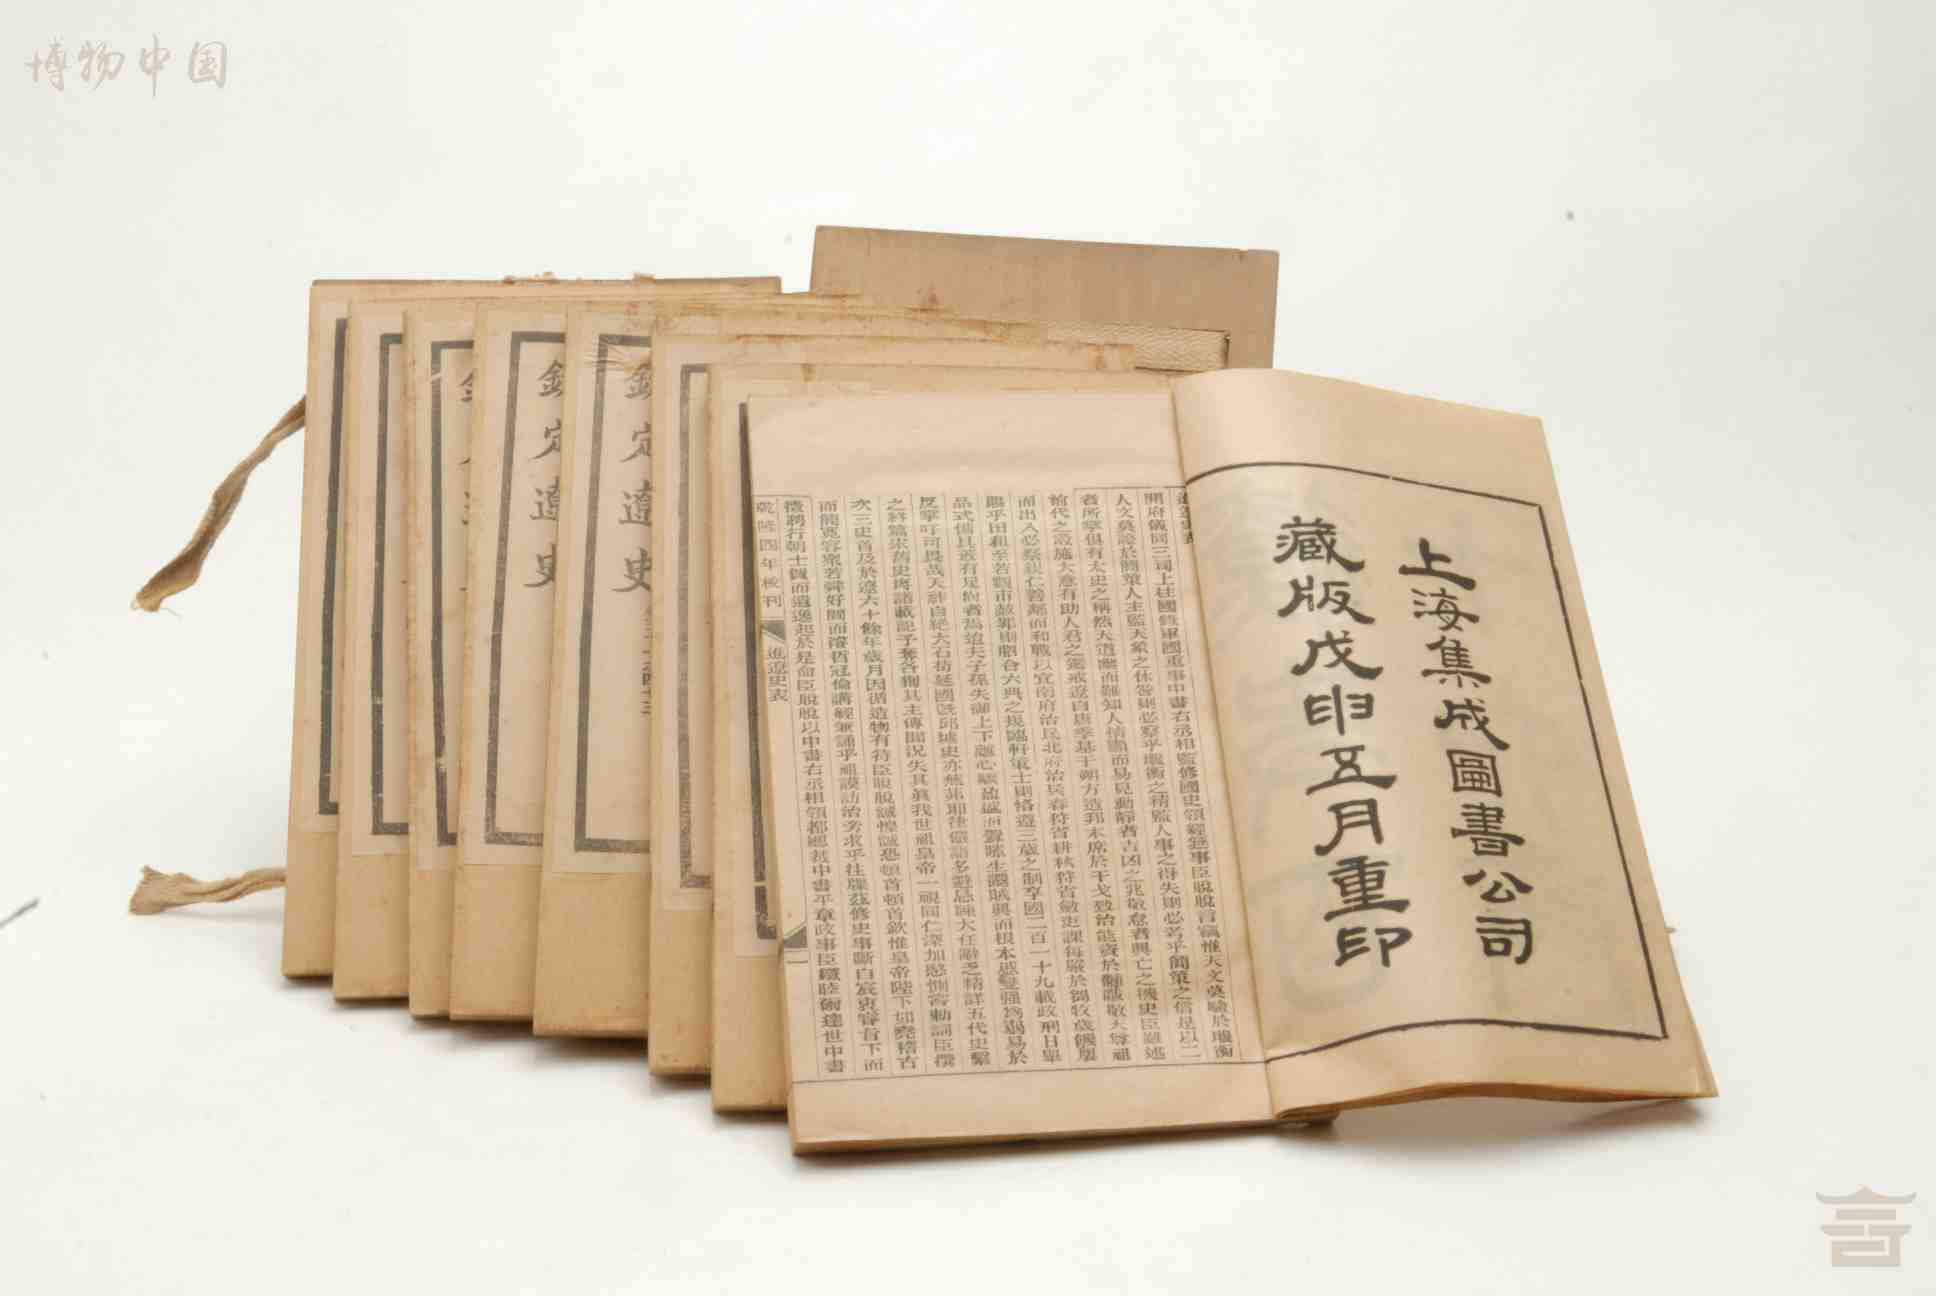 博物中国
上海集成圖書公司
藏版戊申五月重印
進遼史表
開府儀同三司上柱國錄軍國重事中書右丞相監修國史領經筵事臣脫脫言竊惟天文莫驗於璣衡
人文莫證於簡策人主監天象之休咎則必察乎璣衡之精監人事之得失則必考乎簡策之信是以二
者所掌俱有太史之稱然天道幽而難知人情顯而易見動靜者吉凶之兆敬怠者興亡之機史臣雖述
前代之設施大意有助人君之鑑戒遼自唐季基于朔方造邦本席於干戈致治能資於黼黻敬天尊祖
而出入必祭親仁善鄰而和戰以宜南府治民北府治兵春狩省耕秋狩省斂吏課每嚴於芻牧歲饑屢
賜乎田租至若觀市赦罪則脗合六典之規臨軒策士則恪遵三歲之制享國二百一十九載政刑日舉
品式備具蓋有足尚者焉迨夫子孫失御上下離心驕盈盛而釁隙生讒賊興而根本蹙變强爲弱易於
反掌吁可畏哉天祚自絕大石苟延國旣邱墟史亦蕪茀耶律儼語多避忌陳大任辭乏精詳五代史繫
之終篇宋舊史埒諸載記予奪各徇其主傳聞況失其眞我世祖皇帝一視同仁深加愍惻嘗勅詞臣撰
次三史首及於遼六十餘年歲月因循造物有待臣脫脫誠惶誠恐頓首頓首欽惟皇帝陛下如堯稽古
而簡寬容衆若舜好問而濬哲冠倫講經兼誦乎祖謨訪治旁求乎往牒茲修史事斷自宸衷睿旨下而
徵聘行朝士賀而遺逸起於是命臣脫脫以中書右丞相領都總裁中書平章政事臣鐵睦爾達世中書
乾隆四年校刊 進遼史表 一
欽定遼史
欽定遼史